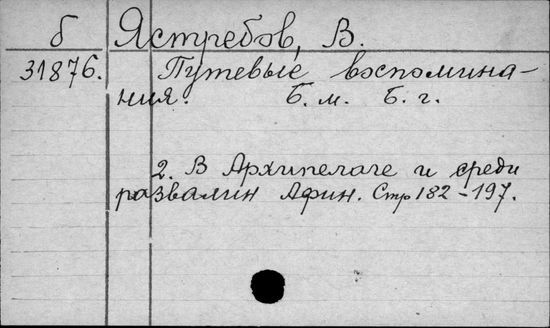 б Ястребов, В.
31876. Путевые воспомина-
ния. Б. м. Б. г.
2. В Архипелаге и среди
развалин Афин. Стр 182-197.